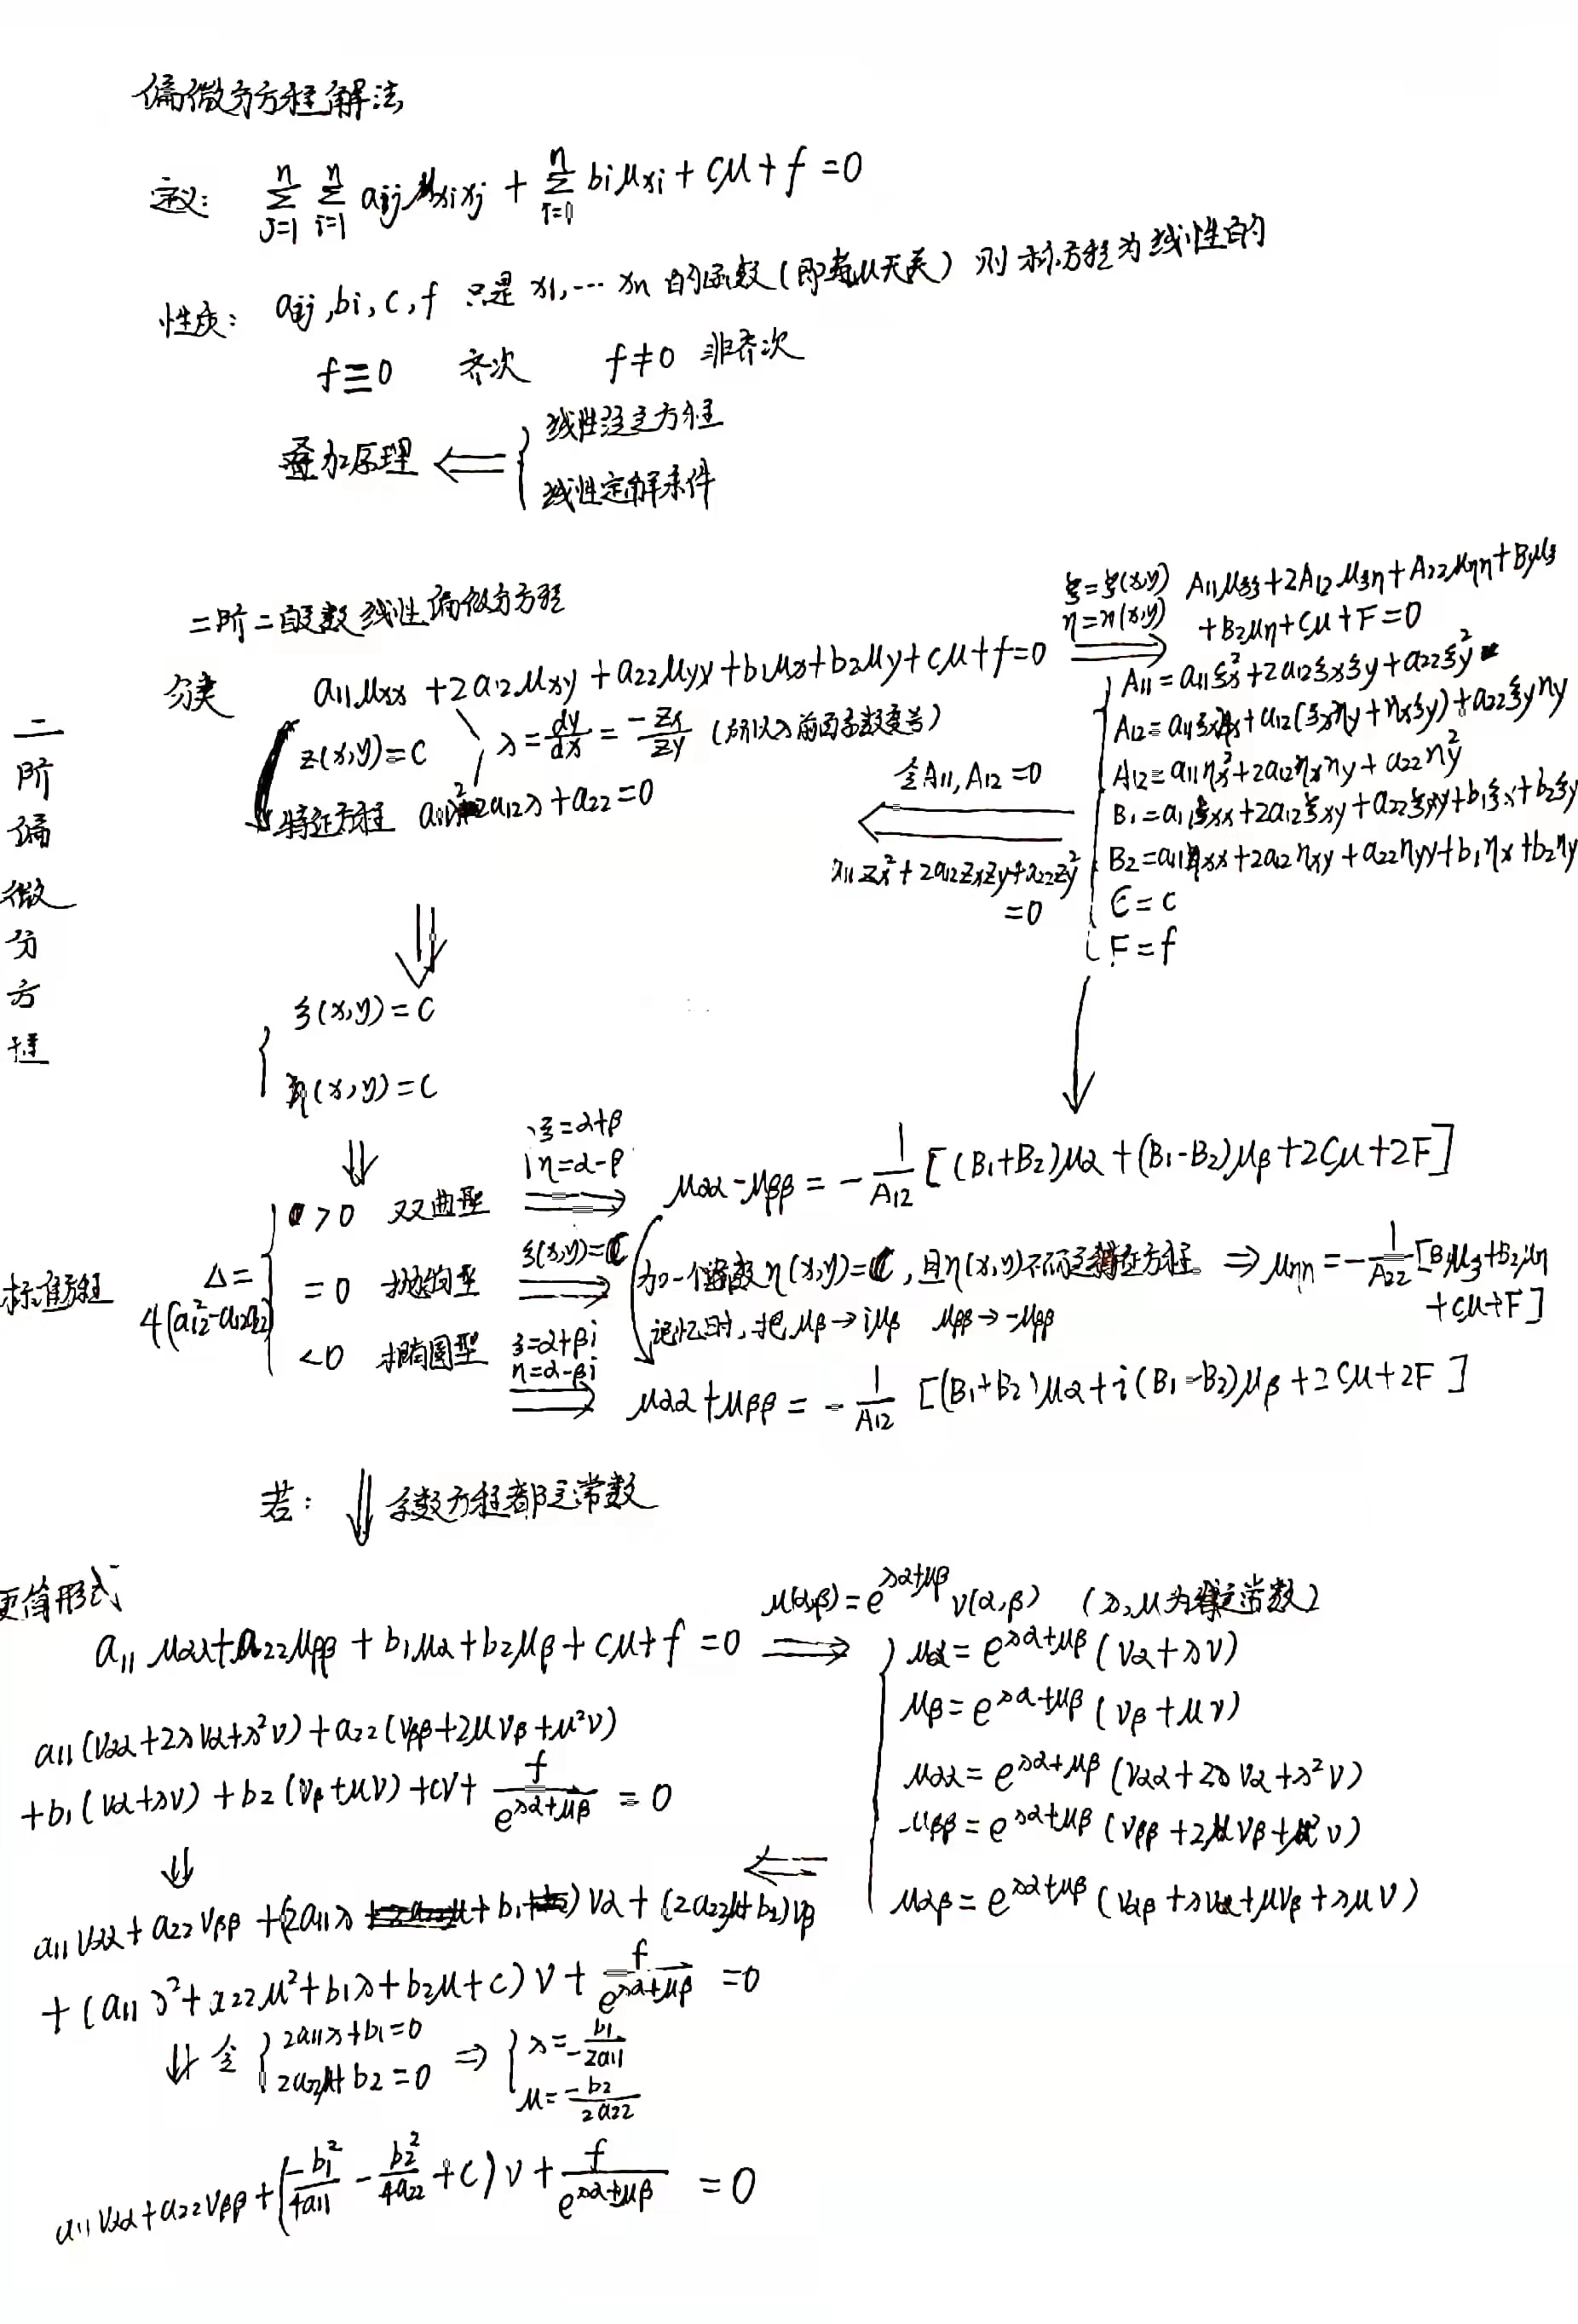 偏微分方程解法
定义: $\sum_{j=1}^{n} \sum_{i=1}^{n} a_{ij} u_{x_i x_j} + \sum_{i=1}^{n} b_i u_{x_i} + cu + f = 0$
性质: $a_{ij}, b_i, c, f$ 只是 $x_1, \cdots x_n$ 的函数(即与u无关) 则称方程为线性的
$f \equiv 0$ 齐次 $f \neq 0$ 非齐次
叠加原理 ⇐ { 线性泛定方程
线性定解条件
二阶二自变数线性偏微分方程
分类 $a_{11} u_{xx} + 2a_{12} u_{xy} + a_{22} u_{yy} + b_1 u_x + b_2 u_y + cu + f = 0$
ξ=ξ(x,y)
η=η(x,y)
⇒ $A_{11} u_{ξξ} + 2A_{12} u_{ξη} + A_{22} u_{ηη} + B_1 u_ξ$
$+ B_2 u_η + Cu + F = 0$
$A_{11} = a_{11} ξ_x^2 + 2a_{12} ξ_x ξ_y + a_{22} ξ_y^2$
$A_{12} = a_{11} ξ_x η_x + a_{12} (ξ_x η_y + η_x ξ_y) + a_{22} ξ_y η_y$
$A_{12} = a_{11} η_x^2 + 2a_{12} η_x η_y + a_{22} η_y^2$
$B_1 = a_{11} ξ_{xx} + 2a_{12} ξ_{xy} + a_{22} ξ_{yy} + b_1 ξ_x + b_2 ξ_y$
$B_2 = a_{11} η_{xx} + 2a_{12} η_{xy} + a_{22} η_{yy} + b_1 η_x + b_2 η_y$
C = c
F = f
令 $A_{11}, A_{12} = 0$
⇐
$a_{11} z_x^2 + 2a_{12} z_x z_y + a_{22} z_y^2$
= 0
z(x,y) = C
$λ = \frac{dy}{dx} = \frac{-z_x}{z_y}$ (所以λ前面系数变号)
特征方程 $a_{11} λ^2 - 2a_{12} λ + a_{22} = 0$
二阶偏微分方程
⇓
ξ(x,y) = C
η(x,y) = C
⇓
标准方程 $Δ = 4(a_{12}^2 - a_{12} a_{22})$
> 0 双曲型
ξ=α+β
η=α-β
⇒ $u_{αα} - u_{ββ} = -\frac{1}{A_{12}} [(B_1 + B_2) u_α + (B_1 - B_2) u_β + 2Cu + 2F]$
= 0 抛物型
ξ(x,y)=C
⇒ 加一个函数η(x,y)=C, 且η(x,y)不满足特征方程 ⇒ $u_{ηη} = -\frac{1}{A_{22}} [B_1 u_ξ + B_2 u_η$
$+ Cu + F]$
记忆时, 把 $u_β → i u_β$ $u_{ββ} → -u_{ββ}$
< 0 椭圆型
ξ=α+βi
η=α-βi
⇒ $u_{αα} + u_{ββ} = -\frac{1}{A_{12}} [(B_1 + B_2) u_α + i(B_1 - B_2) u_β + 2Cu + 2F]$
若: ⇓ 系数方程都是常数
更简形式
$a_{11} u_{αα} + a_{22} u_{ββ} + b_1 u_α + b_2 u_β + cu + f = 0$ ⇒
$u(α,β) = e^{λα+μβ} v(α,β)$ (λ,μ为待定常数)
$u_α = e^{λα+μβ} (v_α + λv)$
$u_β = e^{λα+μβ} (v_β + μv)$
$u_{αα} = e^{λα+μβ} (v_{αα} + 2λv_α + λ^2 v)$
$u_{ββ} = e^{λα+μβ} (v_{ββ} + 2μv_β + μ^2 v)$
$u_{αβ} = e^{λα+μβ} (v_{αβ} + λv_α + μv_β + λμv)$
⇐
$a_{11} (v_{αα} + 2λv_α + λ^2 v) + a_{22} (v_{ββ} + 2μv_β + μ^2 v)$
$+ b_1 (v_α + λv) + b_2 (v_β + μv) + cv + \frac{f}{e^{λα+μβ}} = 0$
⇓
$a_{11} v_{αα} + a_{22} v_{ββ} + (2a_{11} λ + b_1) v_α + (2a_{22} μ + b_2) v_β$
$+ (a_{11} λ^2 + a_{22} μ^2 + b_1 λ + b_2 μ + c) v + \frac{f}{e^{λα+μβ}} = 0$
⇓ 令 { $2a_{11} λ + b_1 = 0$ ⇒ { $λ = -\frac{b_1}{2a_{11}}$
$2a_{22} μ + b_2 = 0$ $μ = \frac{-b_2}{2a_{22}}$
$a_{11} v_{αα} + a_{22} v_{ββ} + (\frac{-b_1^2}{4a_{11}} - \frac{b_2^2}{4a_{22}} + c) v + \frac{f}{e^{λα+μβ}} = 0$